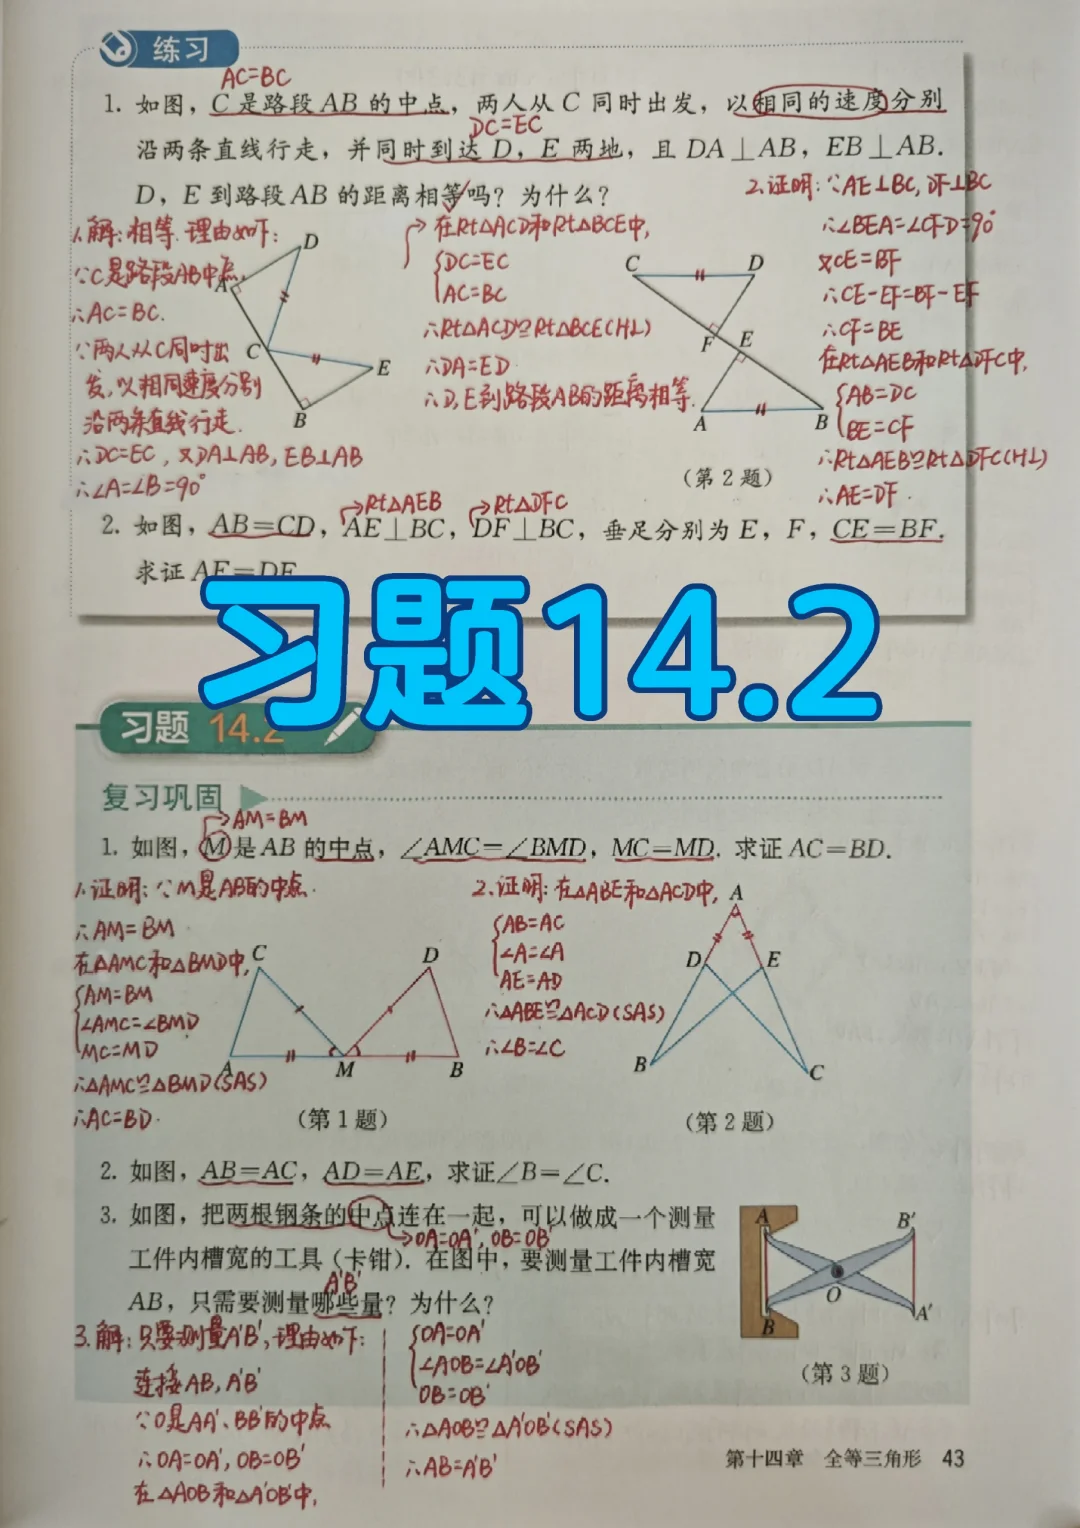 练习
AC=BC
1. 如图，C 是路段 AB 的中点，两人从 C 同时出发，以相同的速度分别
DC=EC
沿两条直线行走，并同时到达 D，E 两地，且 DA⊥AB，EB⊥AB.
D，E 到路段 AB 的距离相等吗？为什么？
1.解：相等.理由如下：
∵C是路段AB中点，
∴AC=BC.
∵两人从C同时出
发，以相同速度分别
沿两条直线行走.
∴DC=EC，又DA⊥AB，EB⊥AB
∴∠A=∠B=90°
在Rt△ACD和Rt△BCE中，
DC=EC
AC=BC
∴Rt△ACD≌Rt△BCE(HL)
∴DA=ED
∴D,E到路段AB的距离相等.
D
A
C
E
B
2.证明：∵AE⊥BC，DF⊥BC
∴∠BEA=∠CFD=90°
又CE=BF
∴CE-EF=BF-EF
∴CF=BE
在Rt△AEB和Rt△DFC中，
AB=DC
BE=CF
∴Rt△AEB≌Rt△DFC(HL)
∴AE=DF.
C
D
F
E
A
B
（第 2 题）
Rt△AEB
Rt△DFC
2. 如图，AB=CD，AE⊥BC，DF⊥BC，垂足分别为 E，F，CE=BF.
求证 AE=DF
习题14.2
习题 14.2
复习巩固
AM=BM
1. 如图，M 是 AB 的中点，∠AMC=∠BMD，MC=MD. 求证 AC=BD.
1.证明：∵M是AB的中点.
∴AM=BM
在△AMC和△BMD中，
AM=BM
∠AMC=∠BMD
MC=MD
∴△AMC≌△BMD(SAS)
∴AC=BD.
C
D
A
M
B
（第 1 题）
2.证明：在△ABE和△ACD中，
AB=AC
∠A=∠A
AE=AD
∴△ABE≌△ACD(SAS)
∴∠B=∠C
A
D
E
B
C
（第 2 题）
2. 如图，AB=AC，AD=AE，求证∠B=∠C.
3. 如图，把两根钢条的中点连在一起，可以做成一个测量
OA=OA'，OB=OB'
工件内槽宽的工具（卡钳）. 在图中，要测量工件内槽宽
A'B'
AB，只需要测量哪些量？为什么？
A
B'
O
B
A'
（第 3 题）
3.解：只要测量A'B'，理由如下：
连接AB，A'B'
∵O是AA'、BB'的中点
∴OA=OA'，OB=OB'
在△AOB和△A'OB'中，
OA=OA'
∠AOB=∠A'OB'
OB=OB'
∴△AOB≌△A'OB'(SAS)
∴AB=A'B'
第十四章 全等三角形 43